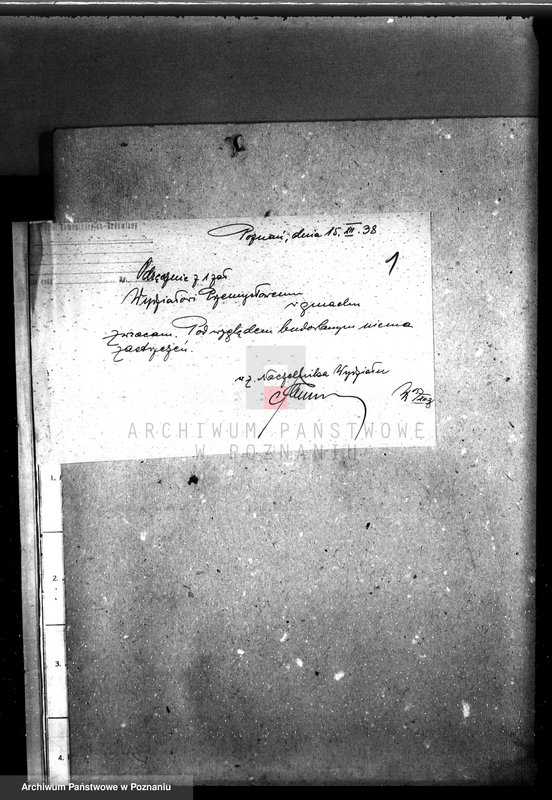 Poznań, dnia 15. III. 38
1
Odręcznie z 1 zał
Wydziałowi Przemysłowemu
w gmachu
zwracam. Pod względem budowlanym niema
zastrzeżeń.
w z. Naczelnika Wydziału
ARCHIWUM PAŃSTWOWE
W POZNANIU
1.
2.
3.
4.
Archiwum Państwowe w Poznaniu